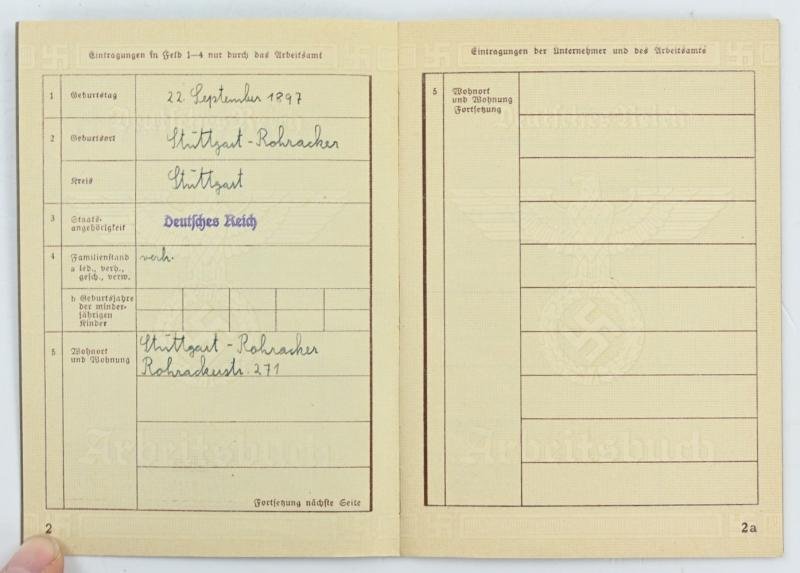 Eintragungen in Feld 1—4 nur durch das Arbeitsamt
1 Geburtstag 22. September 1897
2 Geburtsort Stuttgart-Rohracker
Kreis Stuttgart
3 Staats-
angehörigkeit Deutsches Reich
4 Familienstand verh.
a led., verh.,
gesch., verw.
b Geburtsjahre
der minder-
jährigen
Kinder
5 Wohnort
und Wohnung
Stuttgart - Rohracker
Rohrackerstr. 271
Fortsetzung nächste Seite
2
Eintragungen der Unternehmer und des Arbeitsamts
5 Wohnort
und Wohnung
Fortsetzung
Deutsches Reich
Arbeitsbuch
2a
Deutsches Reich
Arbeitsbuch